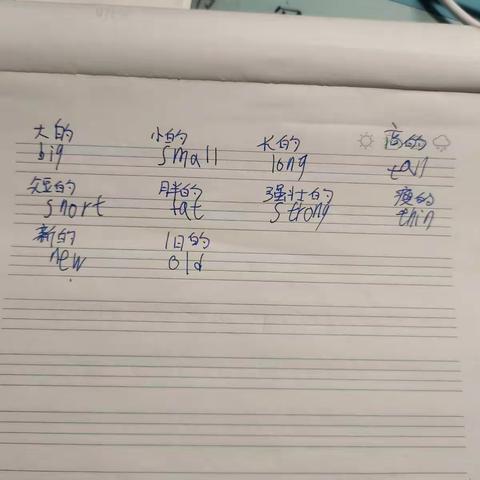 大的 小的 长的 高的
big small long tall
短的 胖的 强壮的 瘦的
short fat strong thin
新的 旧的
new old